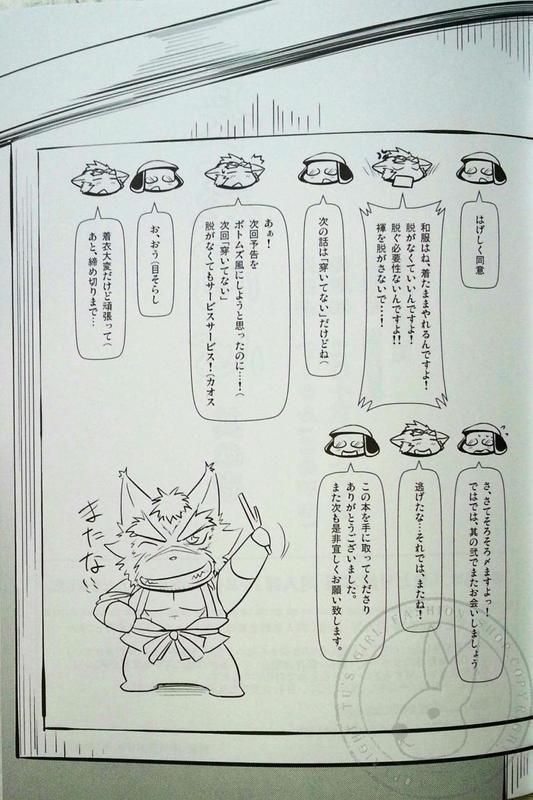 はげしく同意
和服はね、着たままやれるんですよ!
脱がなくていいんですよ!
脱ぐ必要性ないんですよ!!
褌を脱がさないで…!
次の話は「穿いてない」だけどね(
あぁ!
次回予告を
ボトムズ風にしようと思ったのに…!(
次回「穿いてない」
脱がなくてもサービスサービス!(カオス
お、おう(目そらし
着衣大変だけど頑張って(
あと、締め切りまで…
さ、さてそろそろ〆ますよっ!
ではでは、其の弐でまたお会いしましょう
逃げたな…それでは、またね!
この本を手に取ってくださり
ありがとうございました。
また次も是非宜しくお願い致します。
またない
TU'S GIRL FASHION SHOP COPYRIGHT